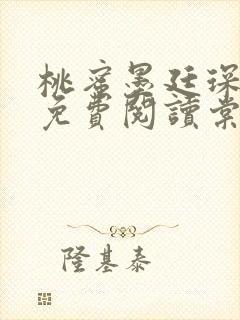 桃蜜墨廷琛
免費閱讀棠
隆基泰